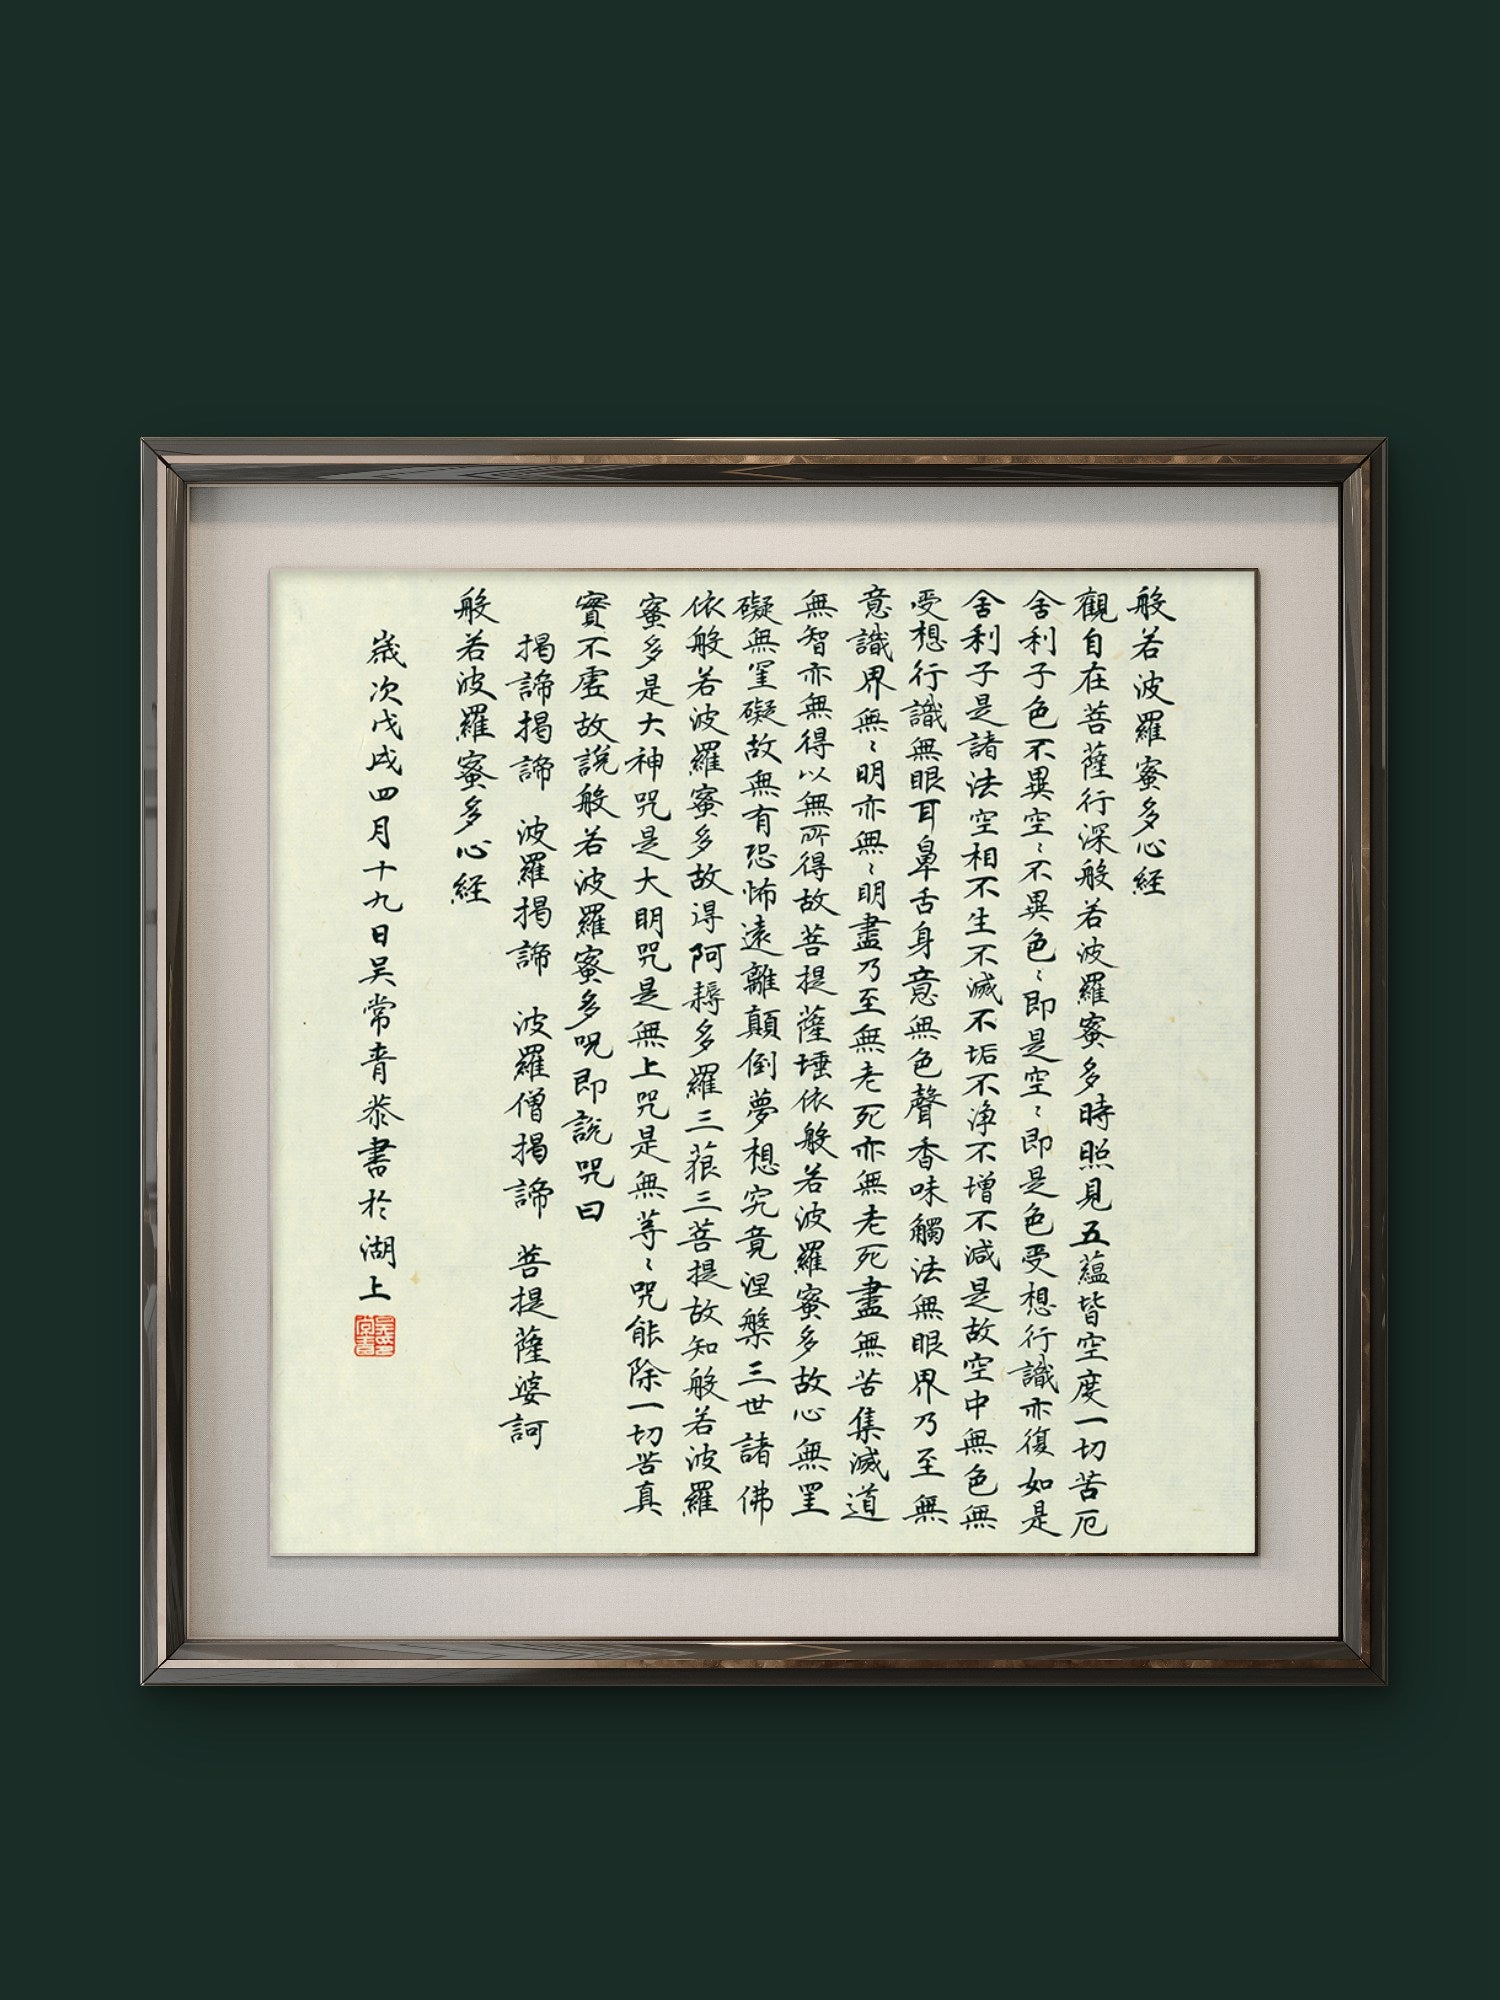 般若波羅蜜多心経
觀自在菩薩行深般若波羅蜜多時照見五蘊皆空度一切苦厄
舍利子色不異空〻不異色〻即是空〻即是色受想行識亦復如是
舍利子是諸法空相不生不滅不垢不淨不增不減是故空中無色無
受想行識無眼耳鼻舌身意無色聲香味觸法無眼界乃至無
意識界無〻明亦無〻明盡乃至無老死亦無老死盡無苦集滅道
無智亦無得以無所得故菩提薩埵依般若波羅蜜多故心無罣
礙無罣礙故無有恐怖遠離顛倒夢想究竟涅槃三世諸佛
依般若波羅蜜多故得阿耨多羅三藐三菩提故知般若波羅
蜜多是大神咒是大明咒是無上咒是無等〻咒能除一切苦真
實不虛故說般若波羅蜜多咒即說咒曰
揭諦揭諦 波羅揭諦 波羅僧揭諦 菩提薩婆訶
般若波羅蜜多心経
歲次戊戌四月十九日吴常青恭書於湖上